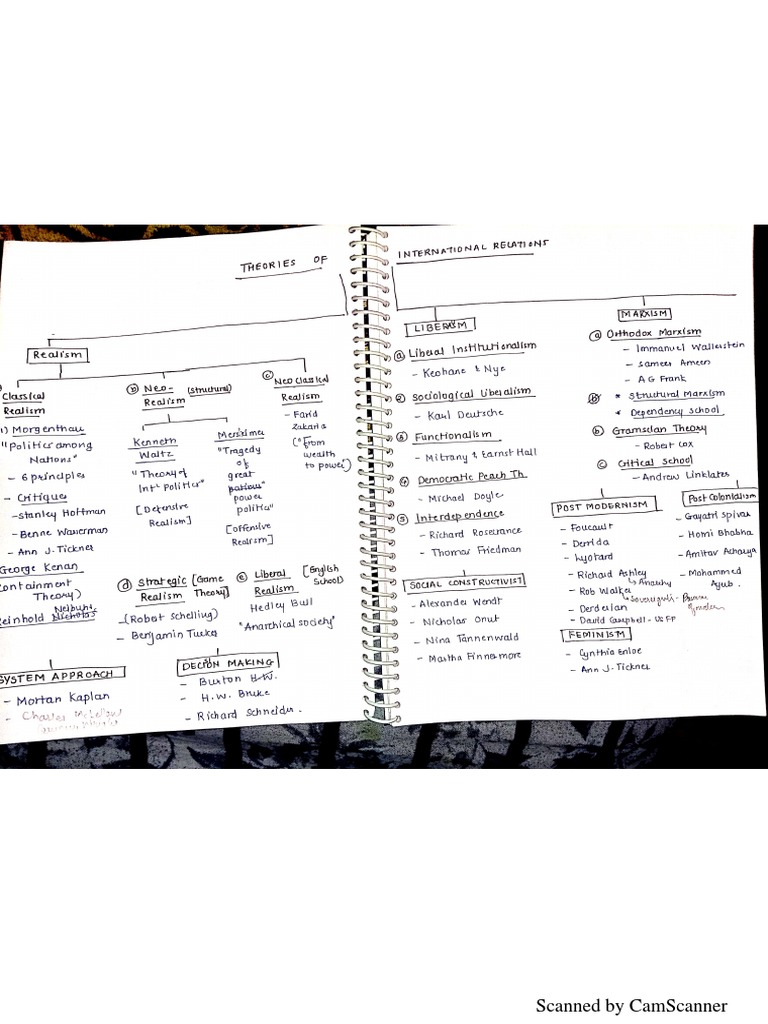 THEORIES OF
Realism
Classical
Realism
1) Morgenthau
"Politics among
Nations"
- 6 principles
- Critique
- Stanley Hoffman
- Benne Waverman
- Ann J. Tickner
George Kenan
Containment
Theory)
Reinhold
(b) Neo- (structural)
Realism
Kenneth
Waltz
"Theory of
Intl Politics"
[Defensive
Realism]
"Tragedy
of
great
power
politics"
[Offensive
Realism]
(c) Neo Classical
Realism
- Farid
Zakaria
("from
wealth
to power)
(d) Strategic [Game
Realism Theory]
- (Robot Schelling)
- Benjamin Tucker
(e) Liberal [English
Realism School]
Hedley Bull
"Anarchical society"
SYSTEM APPROACH
- Mortan Kaplan
- Charles
DECISION MAKING
- Burton H.W.
- H.W. Bruke
- Richard Schneider.
INTERNATIONAL RELATIONS
LIBERALISM
(a) Liberal Institutionalism
- Keohane & Nye
(2) Sociological Liberalism
- Karl Deutsche
(3) Functionalism
- Mitrany & Earnst Hall
(4) Democratic Peach Th.
- Michael Doyle
(5) Interdependence
- Richard Rosecrance
- Thomas Friedman
SOCIAL CONSTRUCTIVIST
- Alexander Wendt
- Nicholar Onut
- Nina Tannenwald
- Martha Finnermore
MARXISM
(a) Orthodox Marxism
- Immanuel Wallerstein
- Sameer Ameen
- A G Frank
* Structural Marxism
* Dependency School
(b) Gramscian Theory
- Robert Cox
(c) Critical School
- Andrew Linklates
POST MODERNISM
- Foucault
- Derrida
- Lyotard
- Richard Ashley
Anarchy
- Rob Walker
- Derderian
- David Campbell - US FP
FEMINISM
- Cynthia Enloe
- Ann J. Tickner
Post Colonialism
- Gayatri Spivak
- Homi Bhabha
- Amitav Acharya
- Mohammed
Ayub.
Scanned by CamScanner